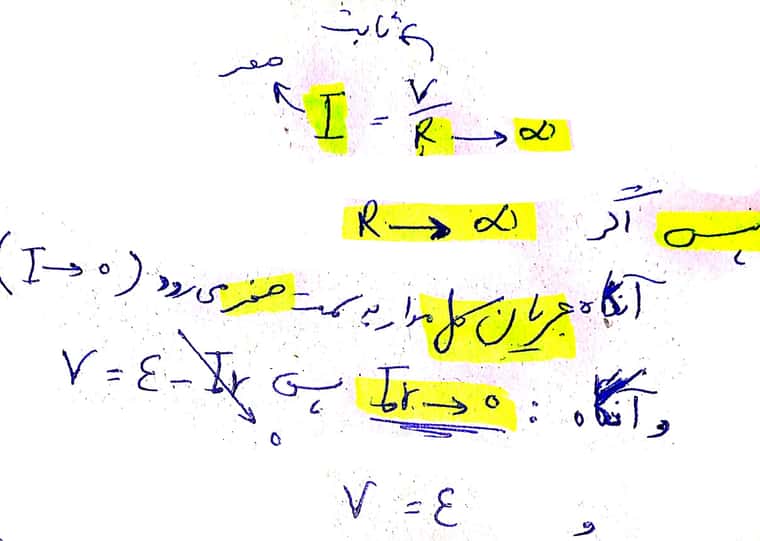 ثابت
صفر
I = V/R → ∞
پس اگر R → ∞
آنگاه جریان کل مدار به سمت صفر می رود (I → 0)
و آنگاه : Ir → 0 پس V = ε − Ir → 0
و V = ε